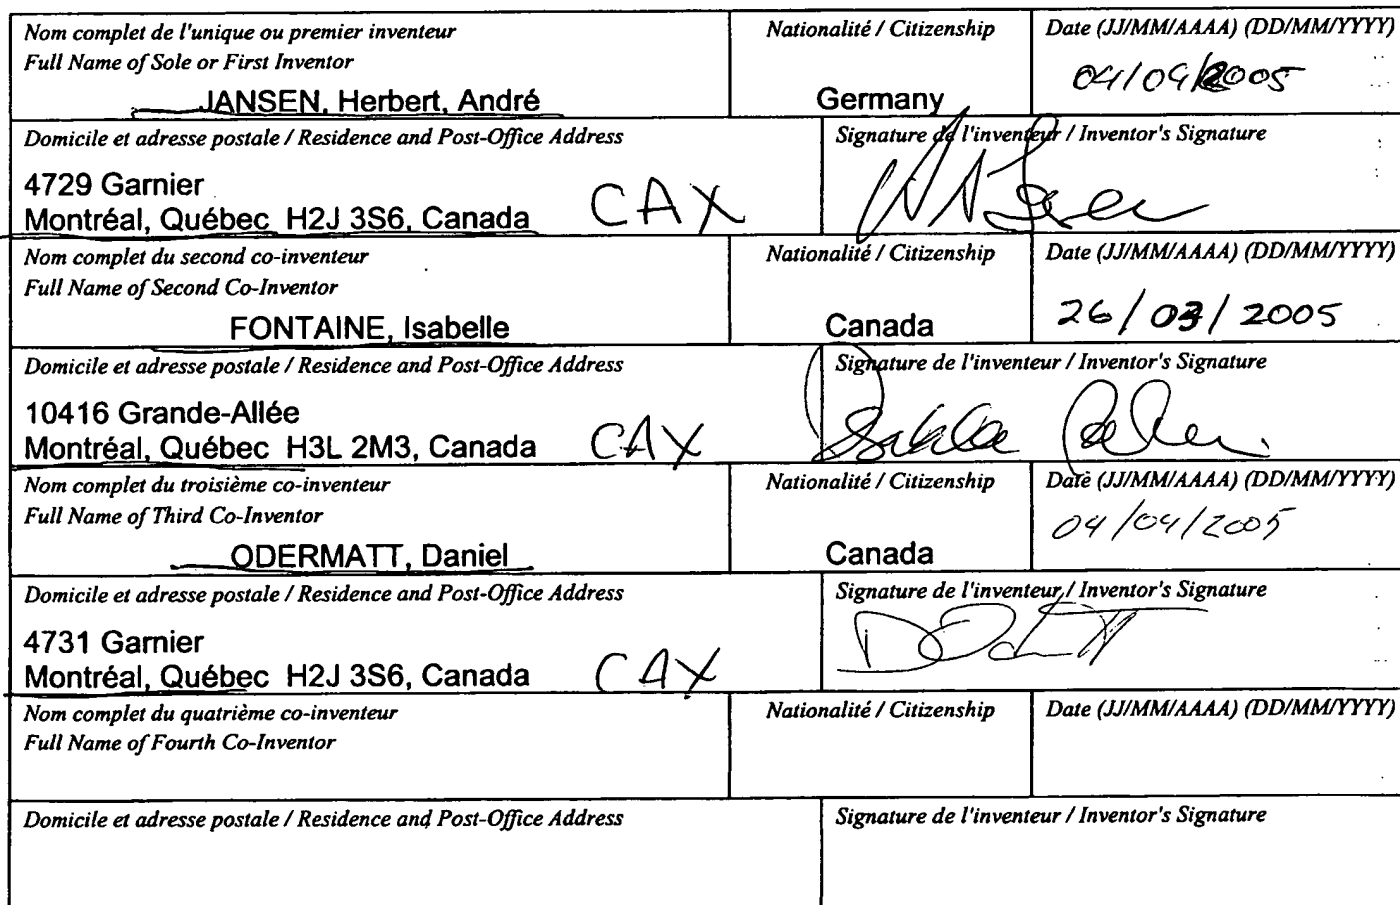 Nom complet de l'unique ou premier inventeur
Full Name of Sole or First Inventor
JANSEN, Herbert, André
Nationalité / Citizenship
Germany
Date (JJ/MM/AAAA) (DD/MM/YYYY)
04/04/2005
Domicile et adresse postale / Residence and Post-Office Address
4729 Garnier
Montréal, Québec H2J 3S6, Canada CAX
Signature de l'inventeur / Inventor's Signature
Nom complet du second co-inventeur
Full Name of Second Co-Inventor
FONTAINE, Isabelle
Nationalité / Citizenship
Canada
Date (JJ/MM/AAAA) (DD/MM/YYYY)
26/03/2005
Domicile et adresse postale / Residence and Post-Office Address
10416 Grande-Allée
Montréal, Québec H3L 2M3, Canada CAX
Signature de l'inventeur / Inventor's Signature
Nom complet du troisième co-inventeur
Full Name of Third Co-Inventor
ODERMATT, Daniel
Nationalité / Citizenship
Canada
Date (JJ/MM/AAAA) (DD/MM/YYYY)
04/04/2005
Domicile et adresse postale / Residence and Post-Office Address
4731 Garnier
Montréal, Québec H2J 3S6, Canada CAX
Signature de l'inventeur / Inventor's Signature
Nom complet du quatrième co-inventeur
Full Name of Fourth Co-Inventor
Nationalité / Citizenship
Date (JJ/MM/AAAA) (DD/MM/YYYY)
Domicile et adresse postale / Residence and Post-Office Address
Signature de l'inventeur / Inventor's Signature